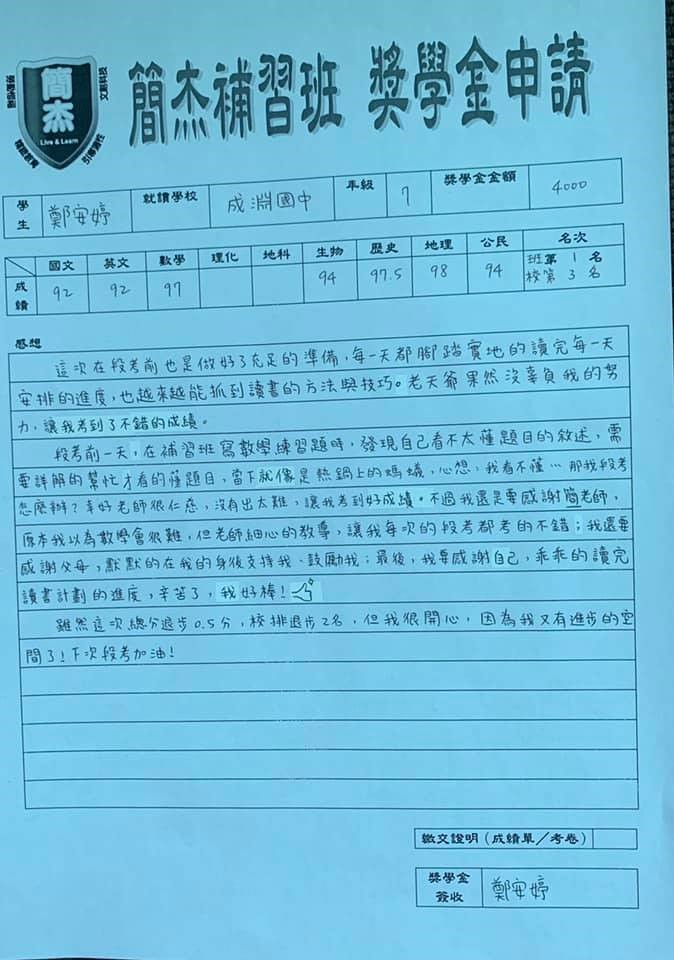 簡杰補習班 獎學金申請
簡杰
Live & Learn
學生 鄭安婷 就讀學校 成淵國中 年級 7 獎學金金額 4000
國文 英文 數學 理化 地科 生物 歷史 地理 公民 名次
成績 92 92 97 94 97.5 98 94 班第 1 名
校第 3 名
感想
這次在段考前也是做好了充足的準備,每一天都腳踏實地的讀完每一天
安排的進度,也越來越能抓到讀書的方法與技巧。老天爺果然沒辜負我的努
力,讓我考到了不錯的成績。
段考前一天,在補習班寫數學練習題時,發現自己看不太懂題目的敘述,需
要詳解的幫忙才看的懂題目,當下就像是熱鍋上的螞蟻,心想,我看不懂…那我段考
怎麼辦?幸好老師很仁慈,沒有出太難,讓我考到好成績。不過我還是要感謝簡老師,
原本我以為數學會很難,但老師細心的教導,讓我每次的段考都考的不錯;我還要
感謝父母,默默的在我的身後支持我、鼓勵我;最後,我要感謝自己,乖乖的讀完
讀書計劃的進度,辛苦了,我好棒!
雖然這次總分退步0.5分,校排退步2名,但我很開心,因為我又有進步的空
間了!下次段考加油!
繳交證明(成績單/考卷)
獎學金簽收 鄭安婷